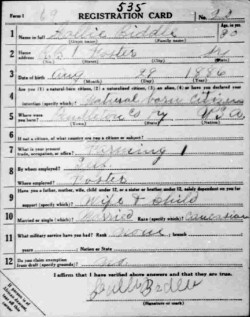 535
Form 1 69 REGISTRATION CARD No. 33
1 Name in full Hallie Riddle Age in yrs. 30
(Given name) (Family name)
2 Home address Foster Ky
(No.) (Street) (City) (State)
3 Date of birth Aug 28 1886
(Month) (Day) (Year)
4 Are you (1) a natural-born citizen, (2) a naturalized citizen, (3) an alien, (4) or have you declared your
intention (specify which)? Natural born Citizen
5 Where were you born? Pendleton Co Ky U.S.A
(Town) (State) (Nation)
6 If not a citizen, of what country are you a citizen or subject?
7 What is your present trade, occupation, or office? Farming
8 By whom employed? Self
Where employed? Foster
9 Have you a father, mother, wife, child under 12, or a sister or brother under 12, solely dependent on you for
support (specify which)? Wife & Child
10 Married or single (which)? Married Race (specify which)? Caucasian
11 What military service have you had? Rank None branch
years Nation or State
12 Do you claim exemption from draft (specify grounds)? No
I affirm that I have verified above answers and that they are true.
Hallie Riddle
(Signature or mark)